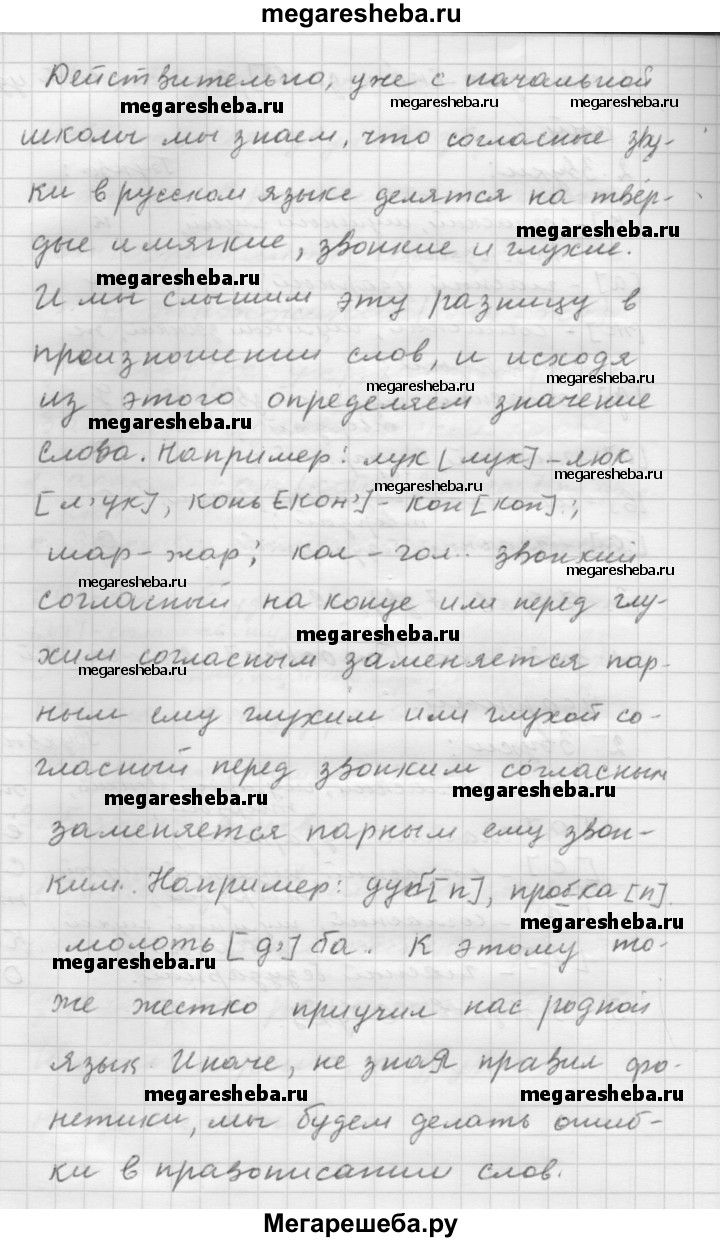 megaresheba.ru
Действительно, уже с начальной
megaresheba.ru megaresheba.ru megaresheba.ru
школы мы знаем, что согласные зву-
ки в русском языке делятся на твёр-
megaresheba.ru
дые и мягкие, звонкие и глухие.
megaresheba.ru
И мы слышим эту разницу в
произношении слов, и исходя
megaresheba.ru megaresheba.ru
из этого определяем значение
megaresheba.ru
слова. Например: лук [лук] - люк
megaresheba.ru
[л'ук], конь [кон'] - кон [кон];
шар - жар; кол - гол. звонкий
megaresheba.ru megaresheba.ru
согласный на конце или перед глу-
megaresheba.ru
хим согласным заменяется пар-
megaresheba.ru
ным ему глухим или глухой со-
гласный перед звонким согласным
megaresheba.ru megaresheba.ru
заменяется парным ему звон-
ким. Например: дуб [п], пробка [п]
megaresheba.ru
молоть [д'] ба. К этому то-
megaresheba.ru
же жестко приучил нас родной
язык. Иначе, не зная правил фо-
megaresheba.ru megaresheba.ru
нетики, мы будем делать ошиб-
ки в правописании слов.
Мегарешеба.ру